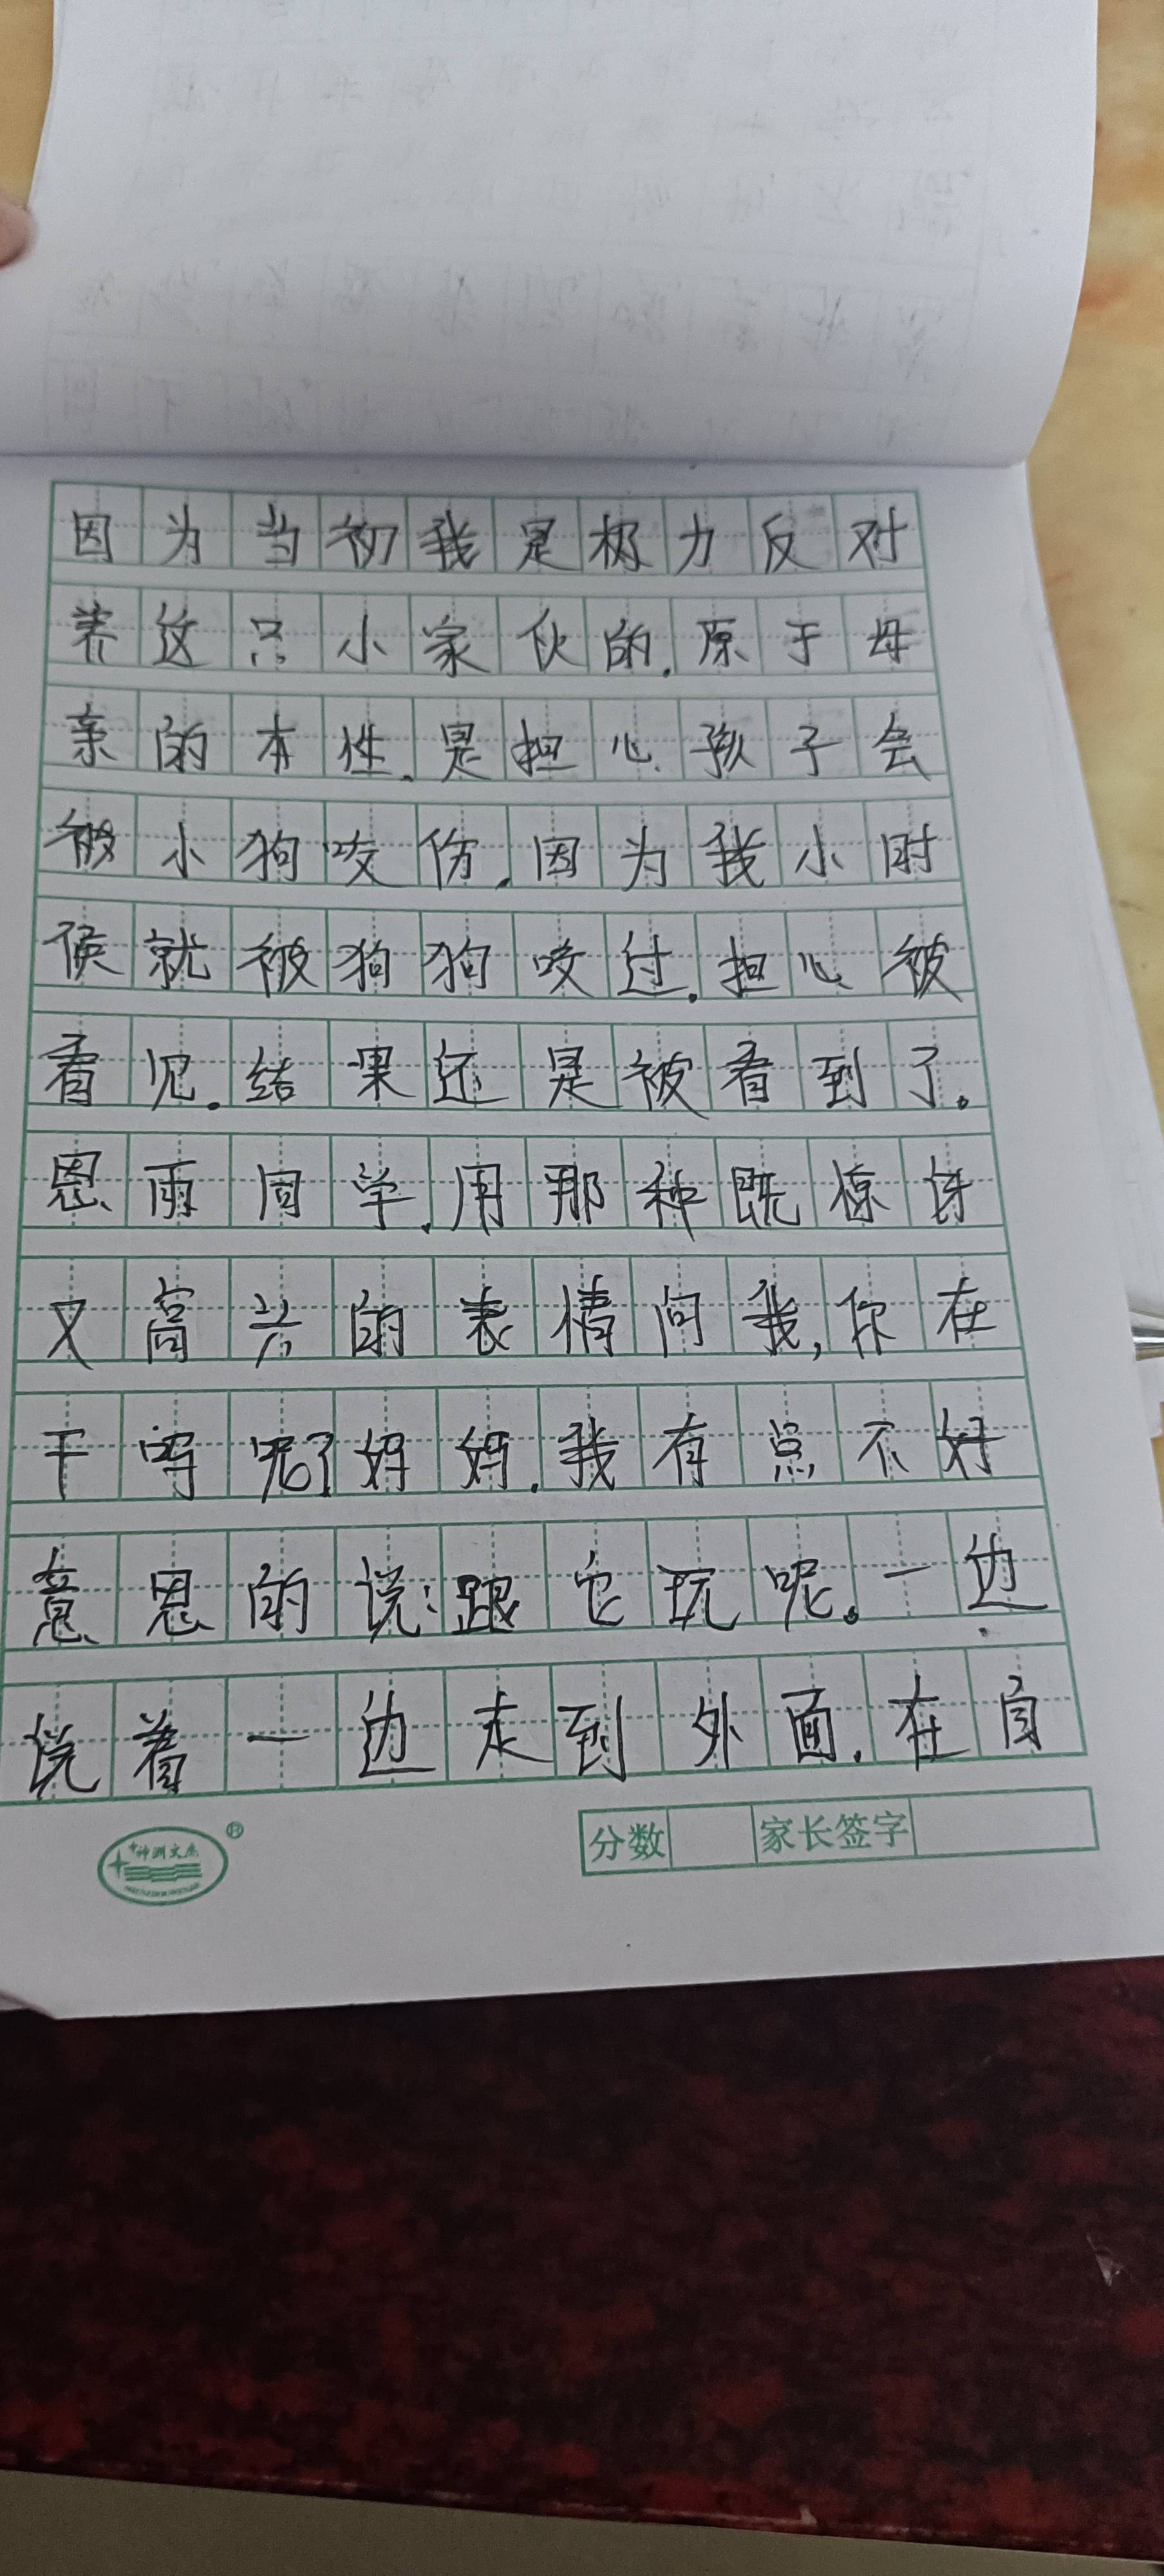 因为当初我是极力反对
养这只小家伙的.原于母
亲的本性.是担心孩子会
被小狗咬伤.因为我小时
候就被狗狗咬过.担心被
看见.结果还是被看到了。
恩雨同学.用那种既惊讶
又高兴的表情问我,你在
干吗呢?妈妈.我有点不好
意思的说:跟它玩呢。一边
说着一边走到外面.在自
分数 家长签字